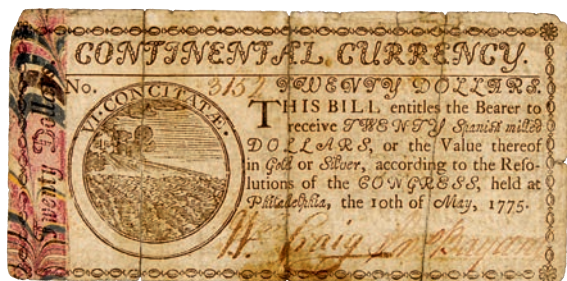 CONTINENTAL CURRENCY.
No. 3154 TWENTY DOLLARS.
VI CONCITATÆ.
THIS BILL entitles the Bearer to
receive TWENTY Spanish milled
DOLLARS, or the Value thereof
in Gold or Silver, according to the Reso-
lutions of the CONGRESS, held at
Philadelphia, the 10th of May, 1775.
Wm Craig
Twenty Dollars